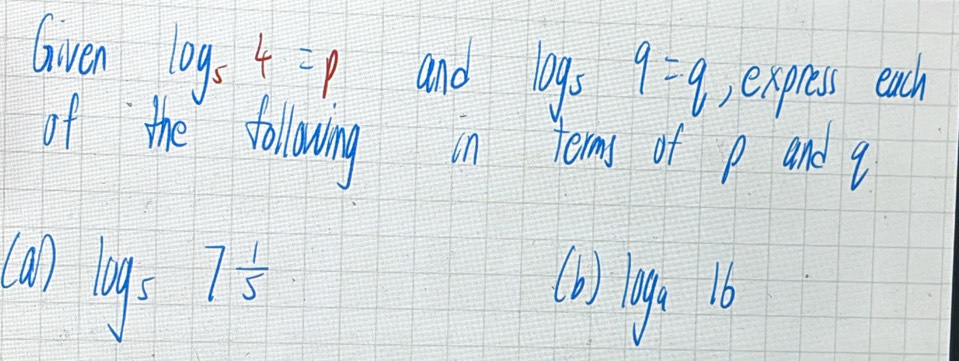 Given log₅ 4 = p and log₅ 9 = q, express each
of the following in terms of p and q
(a) log₅ 7 1/5 (b) log₉ 16